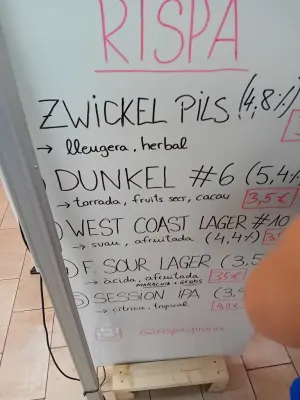 RISPA
ZWICKEL PILS (4,8%)
→ lleugera, herbal
DUNKEL #6 (5,4%
→ tarrada, fruits secs, cacau 3,5€
WEST COAST LAGER #10
→ suau, afruitada (4,4%)
F. SOUR LAGER (3,5
→ àcida, afruitada 3,5€
MARACUIÀ + GERDS
SESSION IPA (3,9
→ cítrica, tropical
@rispagirona